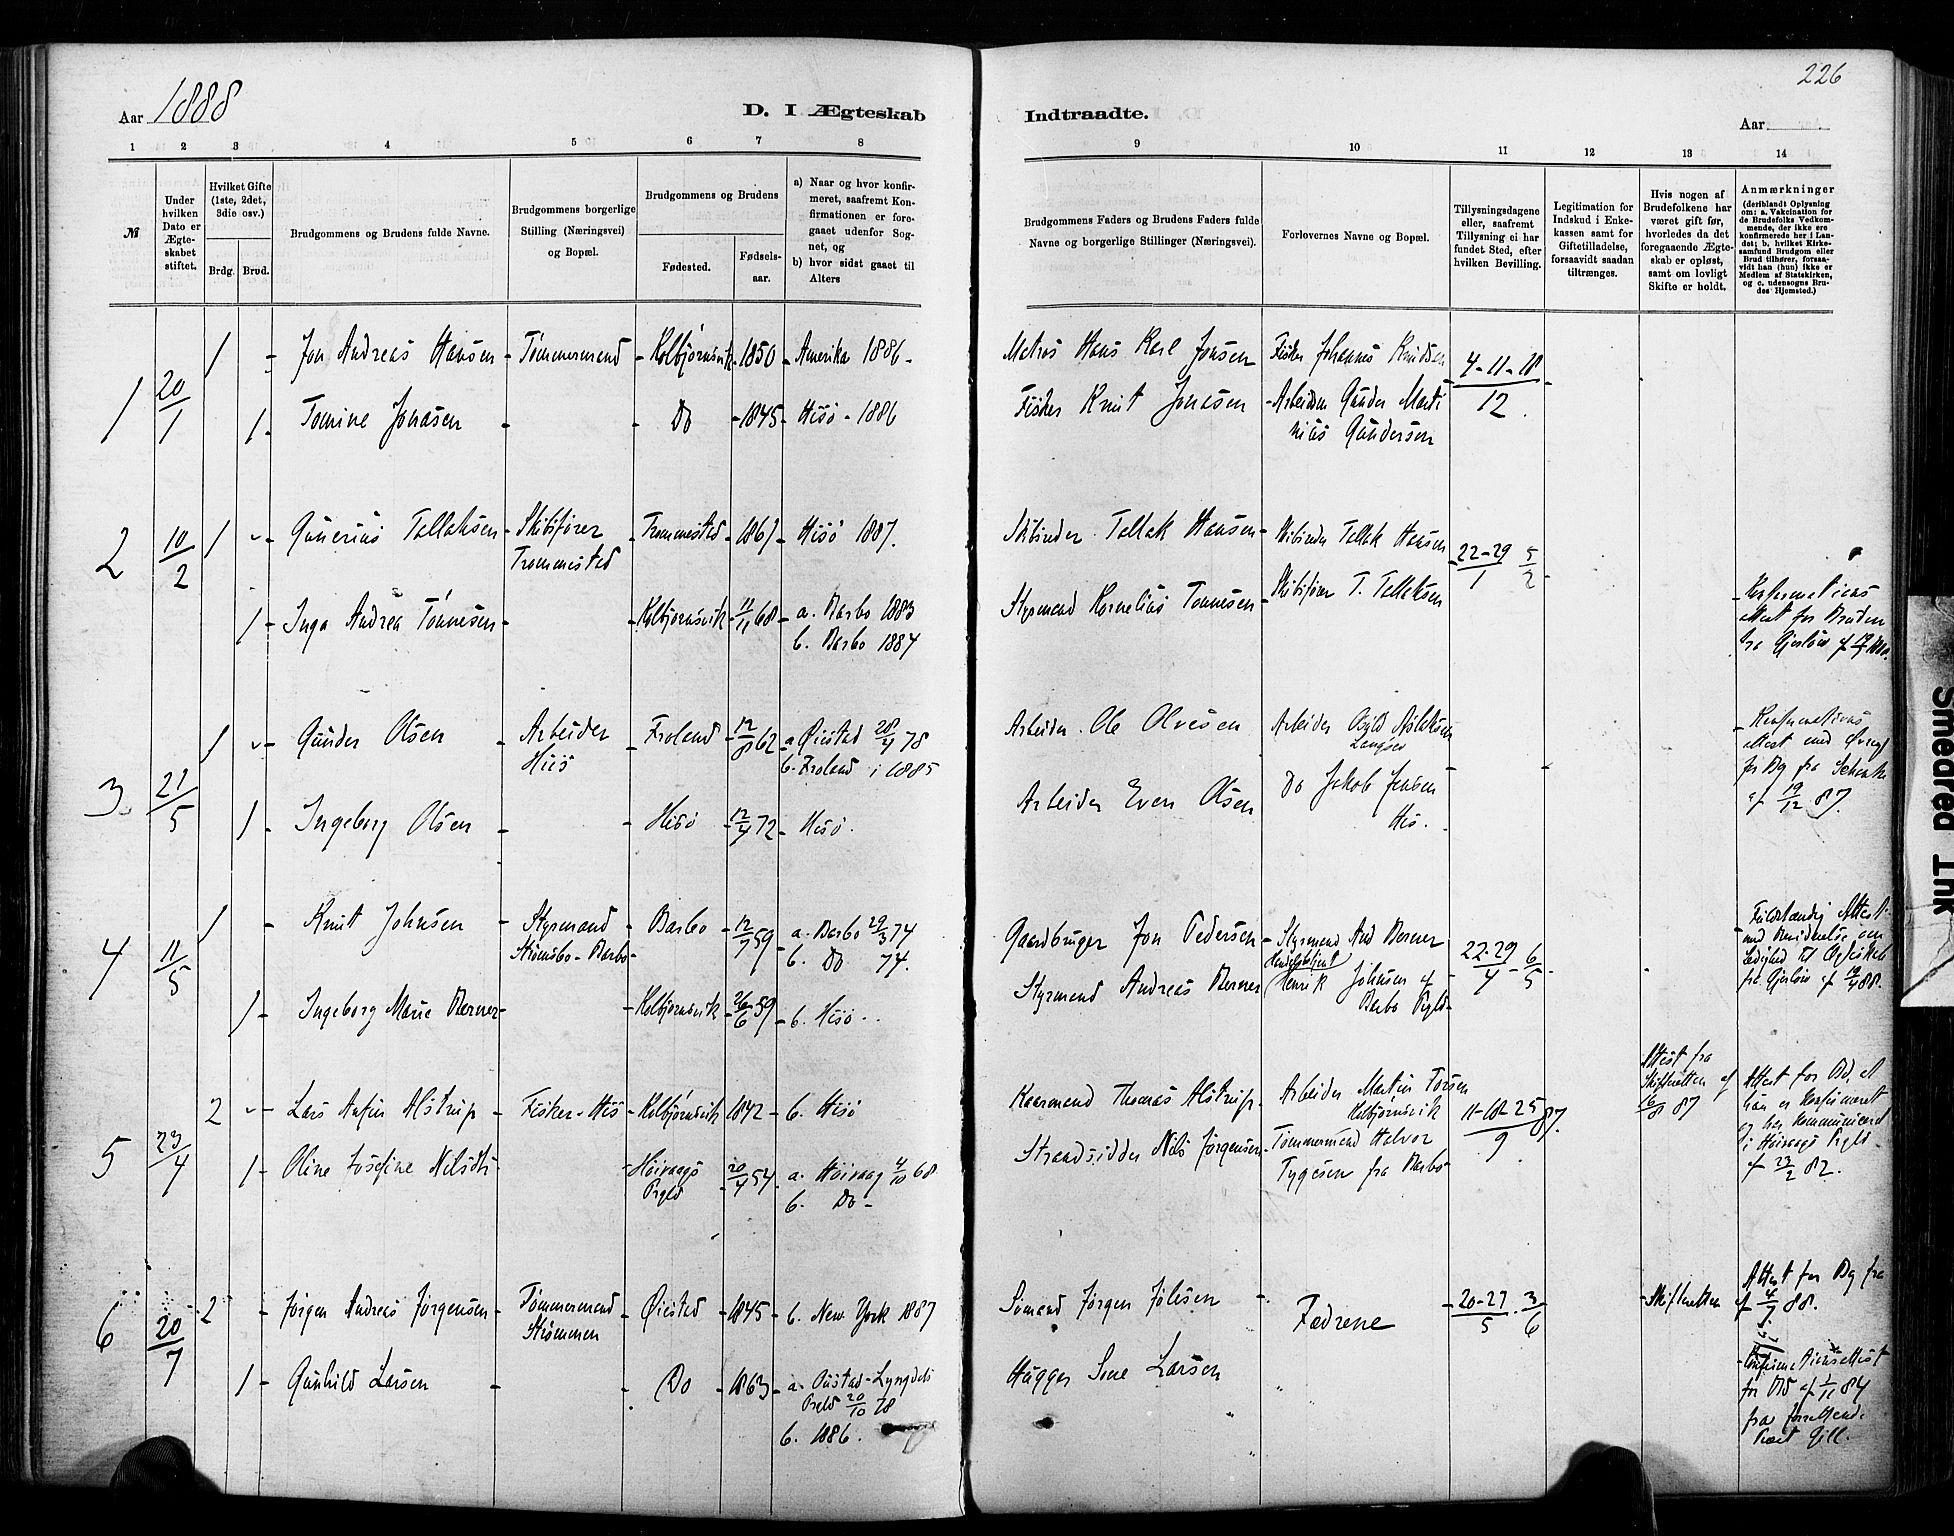 Aar 1888
D. I Ægteskab
1 2 3 4 5 6 7 8
№
Under hvilken Dato er Ægteskabet stiftet.
Hvilket Gifte (1ste, 2det, 3die osv.)
Brdg. Brud.
Brudgommens og Brudens fulde Navne.
Brudgommens borgerlige Stilling (Næringsvei) og Bopæl.
Brudgommens og Brudens
Fødested.
Fødselsaar.
a) Naar og hvor konfirmeret, saafremt Konfirmationen er foregaaet udenfor Sognet, og
b) hvor sidst gaaet til Alters
1 20/1
1 - Jon Andreas Hansen - Tømmermand - Kolbjørnsvik - 1850 - Amerika 1886 -
1 - Tomine Jonasen - - Do - 1845 - Hisö - 1886
2 10/2
1 - Gunerius Tellaksen - Skibsfører - Tromøstad - 1867 - Hisö 1887.
1 - Inga Andrea Tönnesen - - Kolbjørnsvik - 11/11 68 - a. Barbo 1883
b. Barbo 1884
3. 21/5
1 - Gunder Olsen - Arbeider - Froland - 12/8 62 - a Øiestad 28/4 78
Hisö b. Froland i 1885
1 - Ingeborg Olsen - - Hisö - 12/4 72 - Hisö.
4 11/5
1 - Knut Johnsen - Styrmand - Barbo - 12/7 59 - a. Barbo 29/3 74
Strømsbo - Barbo - b. Do 74.
1 - Ingeborg Marie Berner - - Kolbjørnsvik - 26/6 59 - b. Hisö.
5 23/4
2 - Lars Anfin Alstrup - Fisker - His - Kolbjørnsvik - 1842 - b. Hisö
1 - Oline Josefine Nilsdtr - - Høivaags - 20/4 54 - a. Höivaag 4/10 68
Prgld b. Do -
6 20/7
2 - Jørgen Andreas Jørgensen - Tømmermand - Øiestad - 1845 - b. New York 1887
Strømmen
1 - Gunhild Larsen - - Do - 1863 - a.
Prgld 20/10 78
b. 1886.
226
Indtraadte.
Aar
9 10 11 12 13 14
Brudgommens Faders og Brudens Faders fulde Navne og borgerlige Stillinger (Næringsvei).
Forlovernes Navne og Bopæl.
Tillysningsdagene eller, saafremt Tillysning ei har fundet Sted, efter hvilken Bevilling.
Legitimation for Indskud i Enkekassen samt for Giftetilladelse, forsaavidt saadan tiltrænges.
Hvis nogen af Brudefolkene har været gift før, hvorledes da det foregaaende Ægteskab er opløst, samt om lovligt Skifte er holdt.
Anmærkninger (deriblandt Oplysning om: a. Vakcination for de Brudefolks Vedkommende, der ikke ere konfirmerede her i Landet; b. hvilket Kirkesamfund Brudgom eller Brud tilhører, forsaavidt han (hun) ikke er Medlem af Statskirken, og c. udensogns Brudes Hjemsted.)
Matros Hans Karl Jonsen Fisker Johannes Knudsen 4-11-18/12
Fisker Knut Jonasen - Arbeider Gunder Martinius Gundersen
Skibinder Tellak Hansen - Skibinder Tellak Hansen 22-29/1 5/2
Styrmand Kornelius Tønnesen - Skibsfører T. Tellaksen
Konfirmations
Attest for Bruden
fra
Arbeider Ole Olvesen Arbeider
Arbeider Even Olsen Do Jakob Jensen
His.
Konfirmations
Attest
for Bg fra
af 19/12 87.
Gaardbruger Jon Pedersen - Styrmand And Berner 22-29/4 - 6/5
Styrmand Andreas Berner Henrik Johnsen af
Barbo Prgld -
Fuldstændig Attest
fra af 19/4 88.
Thomas Alstrup. Arbeider Martin
Kolbjørnsvik 11-18-25/9 87.
Strandsidder Nils Jørgensen - Tømmermand Halvor
Tygesen fra Barbo
Attest fra
Skifteretten af
16/8 87
Attest for Bd, at
hun er konfirmeret
i Høivaags Prgld -
af 23/2 82.
Sömand Jørgen - Fædrene - 20-27/5 - 3/6
Hugger Larsen
- Skifteretten
Attest for Bg fra
af 4/7 88.
Konfirmationsattest
for Bd af 84
fra
Snedred Ink